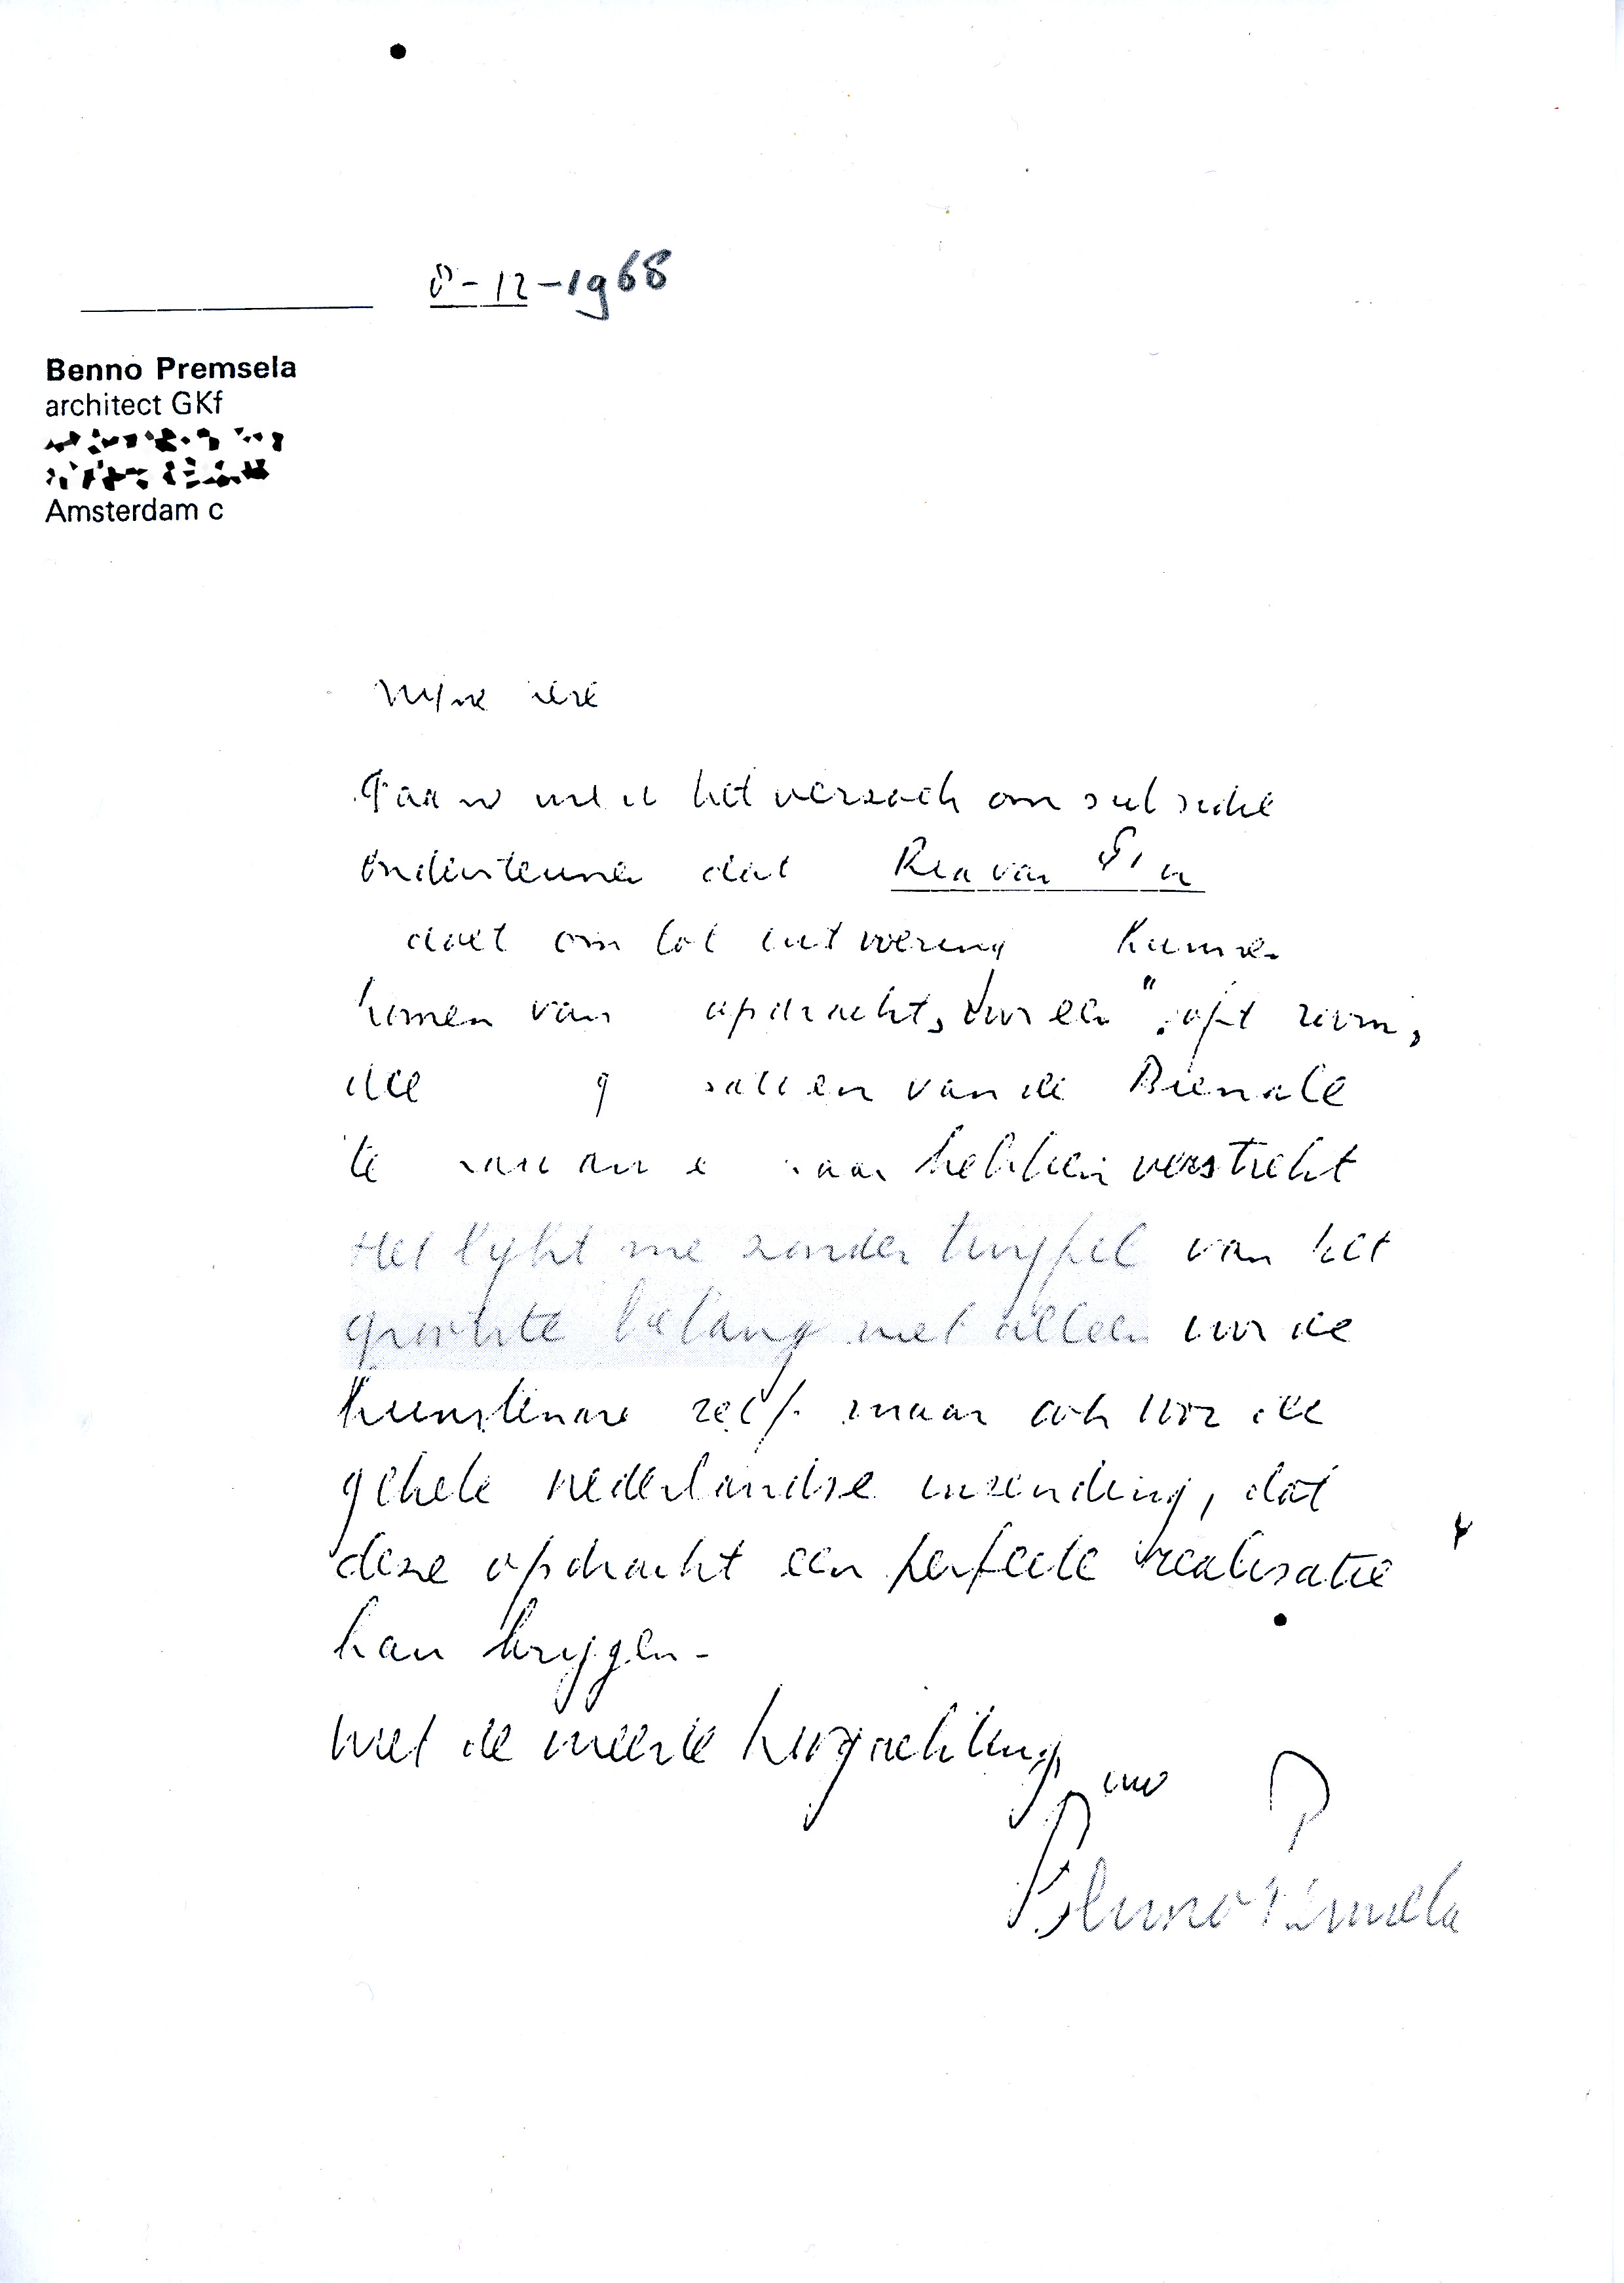 8-12-1968
Benno Premsela
architect GKf
Amsterdam c
Mijne
het verzoek om subsidie
ondersteunen dat Ria van
doet om tot uitvoering kunnen
komen van opdracht, voor een "
die van de Bienale
te hebben verstrekt
Het lijkt me zonder twijfel van het
grootste belang niet alleen voor de
kunstenares zelf maar ook voor de
gehele nederlandse inzending, dat
deze opdracht een perfecte realisatie
kan krijgen-
met de meeste hoogachting
uw
Benno Premsela